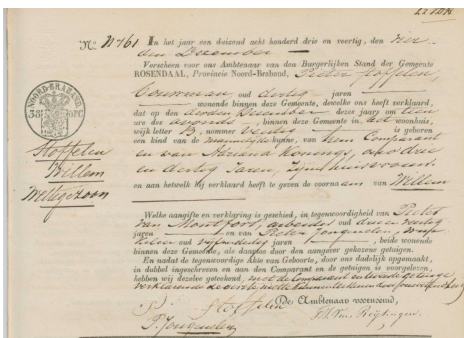 N° 161 In het jaar een duizend acht honderd drie en veertig, den vier
den December
Verscheen voor ons Ambtenaar van den Burgerlijken Stand der Gemeente
ROSENDAAL, Provincie Noord-Braband, Pieter Stoffelen,
bouwman oud dertig jaren
wonende binnen deze Gemeente, dewelke ons heeft verklaard,
dat op den derden December dezes jaars om tien
ure des avonds binnen deze Gemeente in het woonhuis,
wijk letter B, nummer veertig is geboren
een kind van de mannelijke kunne, van hem Comparant
en van Adriana Konings, oud drie
en dertig Jaren, zijne huisvrouw
en aan hetwelk hij verklaard heeft te geven de voornaam van Willem
NOORD-BRABAND
Stoffelen
Willem
Wettige Zoon
Welke aangifte en verklaring is geschied, in tegenwoordigheid van Pieter
van Montfort, arbeider oud drie en veertig
jaren en van Pieter Jongenelen,
oud vijf en dertig jaren, beide wonende
binnen deze Gemeente, als daartoe door den aangever gekozen getuigen.
En nadat de tegenwoordige Akte van Geboorte, door ons dadelijk opgemaakt,
in dubbel ingeschreven en aan den Comparant en de getuigen is voorgelezen,
hebben wij dezelve geteekend, met de comparant en tweede getuige,
verklarende de eerste niet te kunnen
P. Stoffelen De Ambtenaar voornoemd,
P. Jongenelen